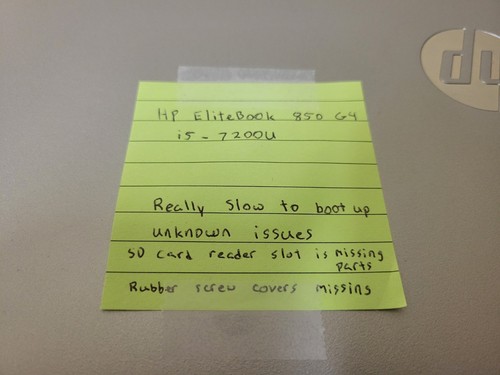 hp
HP EliteBook 850 G4
i5-7200U
Really slow to boot up
unknown issues
SD card reader slot is missing
parts
Rubber screw covers missing